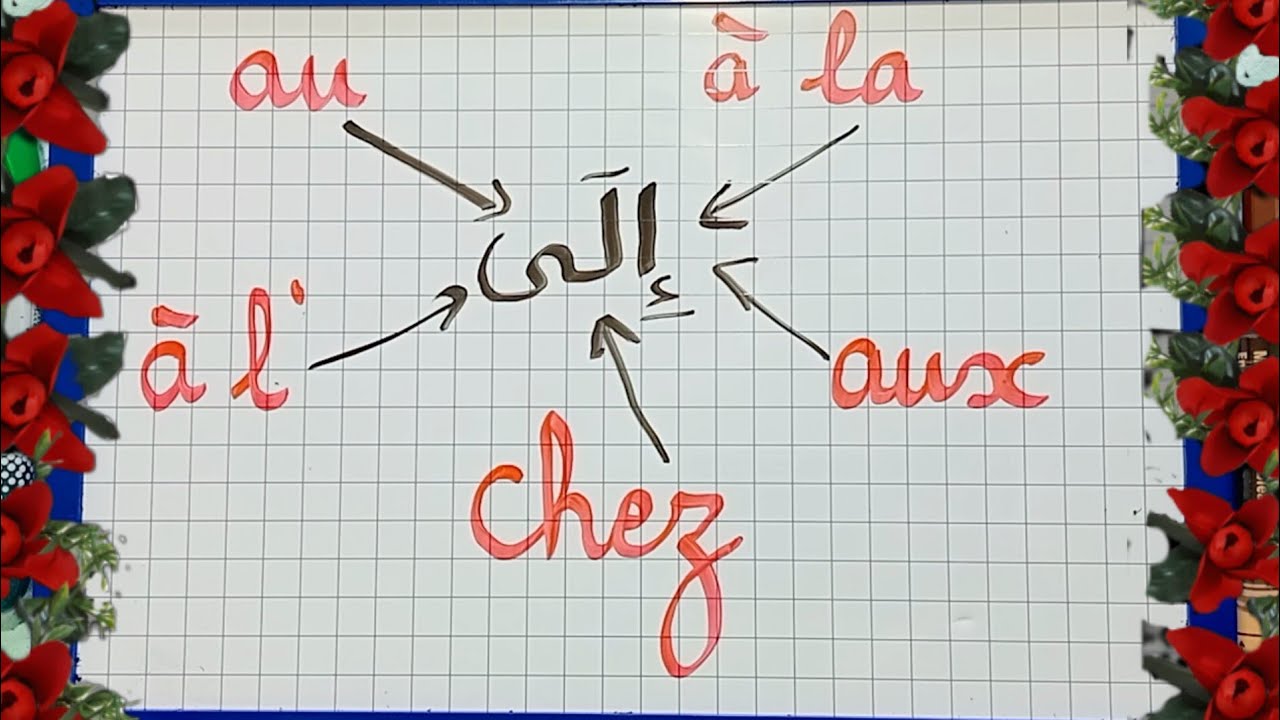 au
à la
إِلَى
à l'
aux
chez